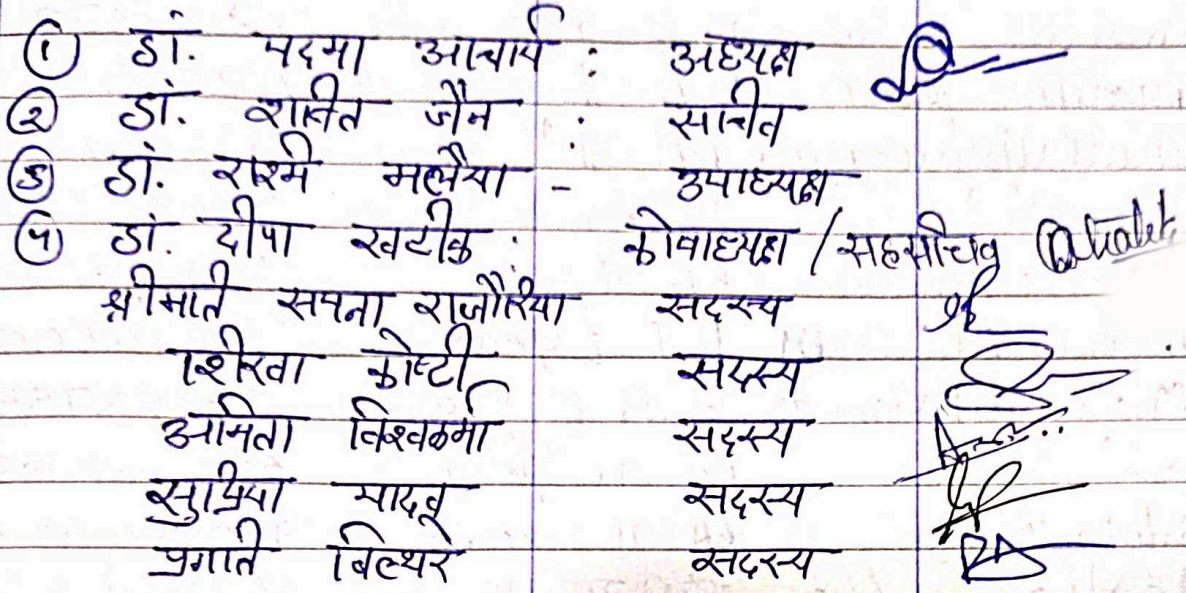 ① डॉ. पदमा आचार्य : अध्यक्ष
② डॉ. शान्ति जैन : सचिव
③ डॉ. रश्मि मलैया - उपाध्यक्ष
④ डॉ दीपा खटीक : कोषाध्यक्ष / सहसचिव
श्रीमति सपना राजौरिया सदस्य
शिखा कोष्टी सदस्य
अमिता विश्वकर्मा सदस्य
सुप्रिया यादव सदस्य
प्रगति बिल्थरे सदस्य